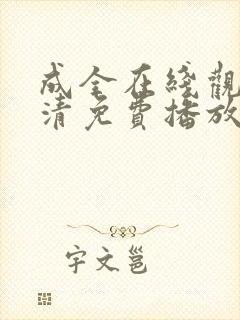 成全在綫觀
清免費播放
宇文邕